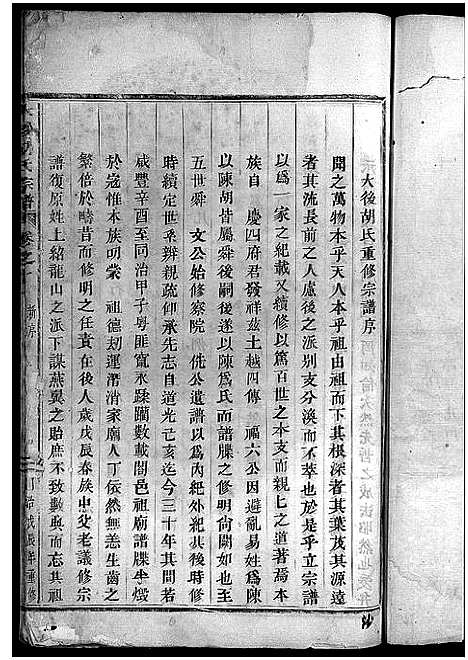 大後胡氏重修宗譜序
聞之萬物本乎天人本乎祖由祖而下其根深者其葉茂其源遠
者其流長前之人慮後之別支分渙而不萃也於是乎立宗譜
以爲一家之紀載又續修以篤百世之本支而親上之道著焉本
族自 慶四府君發祥茲土越四傳 福六公因避亂易姓爲陳
以陳胡皆屬舜後嗣後遂以陳爲氏而譜牒之修明尙闕如也至
五世舜 文公始修察院 侁公遺譜以爲內紀外紀其後時修
時續定世系辨親疏仰承先志自道光己亥迄今三十年其間若
咸豐辛酉至同治甲子粵匪竄永蹂躪數載闔邑祖廟譜牒半燬
於寇惟本族叨蒙 祖德刼運潛消家廟人丁依然無恙生齒之
繁倍於疇昔而修明之任責在後人歲戊辰春族中父老議修宗
譜復原姓上紹龍山之派下謀燕翼之貽庶不致數典而忘其祖
氏宗譜 卷之 新序
戊辰年重修